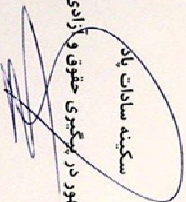 سکینه سادات پاد
ور در پیگیری حقوق و آزادی